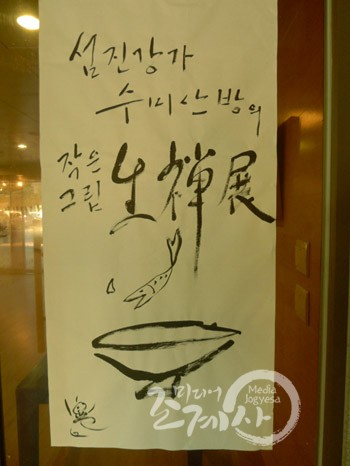 섬진강가
수미산방의
작은
그림
生禪展
미디어
조계사
Media
Jogyesa